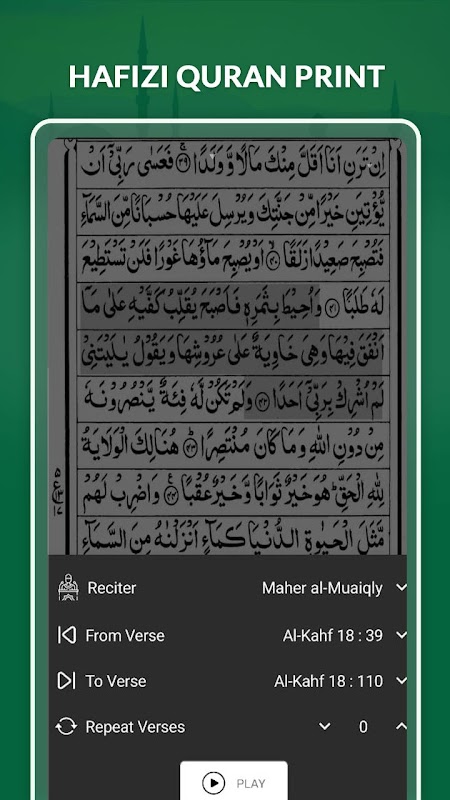 HAFIZI QURAN PRINT
اِنْ تَرَنِ اَنَا اَقَلَّ مِنْكَ مَالًا وَّ وَلَدًا ۚ﴿۳۹﴾ فَعَسٰی رَبِّیْۤ اَنْ
یُّؤْتِیَنِ خَیْرًا مِّنْ جَنَّتِكَ وَ یُرْسِلَ عَلَیْهَا حُسْبَانًا مِّنَ السَّمَآءِ
فَتُصْبِحَ صَعِیْدًا زَلَقًا ﴿۴۰﴾ اَوْ یُصْبِحَ مَآؤُهَا غَوْرًا فَلَنْ تَسْتَطِیْعَ
لَهٗ طَلَبًا ﴿۴۱﴾ وَ اُحِیْطَ بِثَمَرِهٖ فَاَصْبَحَ یُقَلِّبُ كَفَّیْهِ عَلٰی مَاۤ
اَنْفَقَ فِیْهَا وَ هِیَ خَاوِیَةٌ عَلٰی عُرُوْشِهَا وَ یَقُوْلُ یٰلَیْتَنِیْ
لَمْ اُشْرِكْ بِرَبِّیْۤ اَحَدًا ﴿۴۲﴾ وَ لَمْ تَكُنْ لَّهٗ فِئَةٌ یَّنْصُرُوْنَهٗ
مِنْ دُوْنِ اللّٰهِ وَ مَا كَانَ مُنْتَصِرًا ﴿۴۳﴾ هُنَالِكَ الْوَلَایَةُ
لِلّٰهِ الْحَقِّ ؕ هُوَ خَیْرٌ ثَوَابًا وَّ خَیْرٌ عُقْبًا ﴿۴۴﴾ وَ اضْرِبْ لَهُمْ
مَّثَلَ الْحَیٰوةِ الدُّنْیَا كَمَآءٍ اَنْزَلْنٰهُ مِنَ السَّمَآءِ
Reciter Maher al-Muaiqly
From Verse Al-Kahf 18 : 39
To Verse Al-Kahf 18 : 110
Repeat Verses 0
PLAY